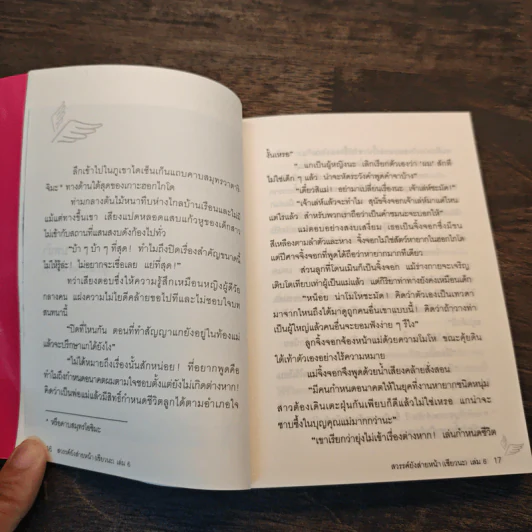 ลึกเข้าไปในภูเขาไดเซ็นเก็นแถบคาบสมุทรวาตาริ
จิมะ* ทางด้านใต้สุดของเกาะฮอกไกโด
ท่ามกลางต้นไม้หนาทึบห่างไกลบ้านเรือนและไม่มี
แม้แต่ทางขึ้นเขา เสียงแปดหลอดแสบแก้วหูของเด็กสาว
ไม่เข้ากับสถานที่แสนสงบดังก้องไปทั่ว
“บ้า ๆ บ้า ๆ ที่สุด! ทำไมถึงปิดเรื่องสำคัญขนาดนี้
ไม่ให้รู้ล่ะ! ไม่อยากจะเชื่อเลย แย่ที่สุด!”
ทว่าเสียงตอบซึ่งให้ความรู้สึกเหมือนหญิงผู้ดีวัย
กลางคน แฝงความไม่ยี่หระคล้ายขอไปทีและไม่ชอบใจบท
สนทนานี้
“ปิดที่ไหนกัน ตอนที่ทำสัญญาแกยังอยู่ในท้องแม่
แล้วจะปรึกษาแกได้ยังไง”
“ไม่ได้หมายถึงเรื่องนั้นสักหน่อย! ที่อยากพูดคือ
ทำไมถึงกำหนดอนาคตผมตามใจชอบตั้งแต่ยังไม่เกิดต่างหาก!
คิดว่าเป็นพ่อแม่แล้วมีสิทธิ์กำหนดชีวิตลูกได้ตามอำเภอใจ
* หรือคาบสมุทรโอชิมะ
สวรรค์ยังส่ายหน้า (เซียวนะ) เล่ม 6
งั้นเหรอ”
“...แกเป็นผู้หญิงนะ เลิกเรียกตัวเองว่า ‘ผม’ สักที
ไม่ใช่เด็ก ๆ แล้ว น่าจะหัดระวังคำพูดคำจาบ้าง”
“เดี๋ยวสิแม่! อย่ามาเปลี่ยนเรื่องนะ เจ้าเล่ห์ชะมัด!”
“เจ้าเล่ห์แล้วจะทำไม สุนัขจิ้งจอกเจ้าเล่ห์มาแต่ไหน
แต่ไรแล้ว สำหรับพวกเราถือว่าเป็นคำชมนะจะบอกให้”
แม่ตอบอย่างสงบเสงี่ยม เธอเป็นจิ้งจอกซึ่งมีขน
สีเหลืองตามลำตัวและหาง จิ้งจอกไม่ใช่สัตว์หายากในฮอกไกโด
แต่ปีศาจจิ้งจอกที่พูดได้ถือว่าหายากมากทีเดียว
ส่วนลูกที่โดนเมินก็เป็นจิ้งจอก แม้ร่างกายจะเจริญ
เติบโตเทียบเท่าผู้เป็นแม่แล้ว แต่กิริยาท่าทางยังคงเหมือนเด็ก
“หน่อย น่าโมโหชะมัด! คิดว่าตัวเองเป็นเทวดา
มาจากไหนถึงได้มาดูถูกคนอื่นเขาแบบนี้! คิดว่าถ้าวางท่า
เป็นผู้ใหญ่แล้วคนอื่นจะยอมฟังง่าย ๆ รึไง”
ลูกจิ้งจอกจ้องหน้าแม่ด้วยความโมโห ขณะคุ้ยดิน
ใต้เท้าตัวเองอย่างไร้ความหมาย
แม่จิ้งจอกจึงพูดด้วยน้ำเสียงคล้ายสั่งสอน
“มีคนกำหนดอนาคตให้ในยุคที่งานหายากชนิดหนุ่ม
สาวต้องเดินเตะฝุ่นกันเพียบก็ดีแล้วไม่ใช่เหรอ แกน่าจะ
ซาบซึ้งในบุญคุณแม่มากกว่านะ”
“เขาเรียกว่ายุ่งไม่เข้าเรื่องต่างหาก! เล่นกำหนดชีวิต
สวรรค์ยังส่ายหน้า (เซียวนะ) เล่ม 6 17